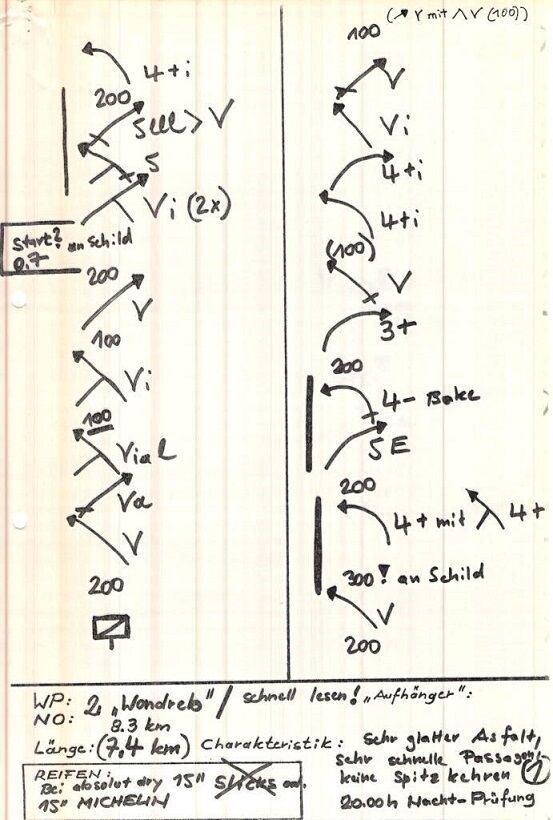 (↗ V mit ΛV (100))
4+i
200
5 lll > V
5
Vi (2x)
Start? an Schild
0,7
200
V
100
Vi
100
Via l
Va
V
200
100
V
Vi
4+i
4+i
(100)
V
3+
200
4- Bake
5 E
200
4+ mit 4+
300! an Schild
V
200
WP: 2 „Wondreb" / schnell lesen! „Aufhänger":
NO: 8.3 km
Länge: (7,4 km) Charakteristik: Sehr glatter Asfalt,
sehr schnelle Passagen,
keine Spitzkehren 1
20.00 h Nacht-Prüfung
REIFEN:
Bei absolut dry 15" Slicks od.
15" MICHELIN